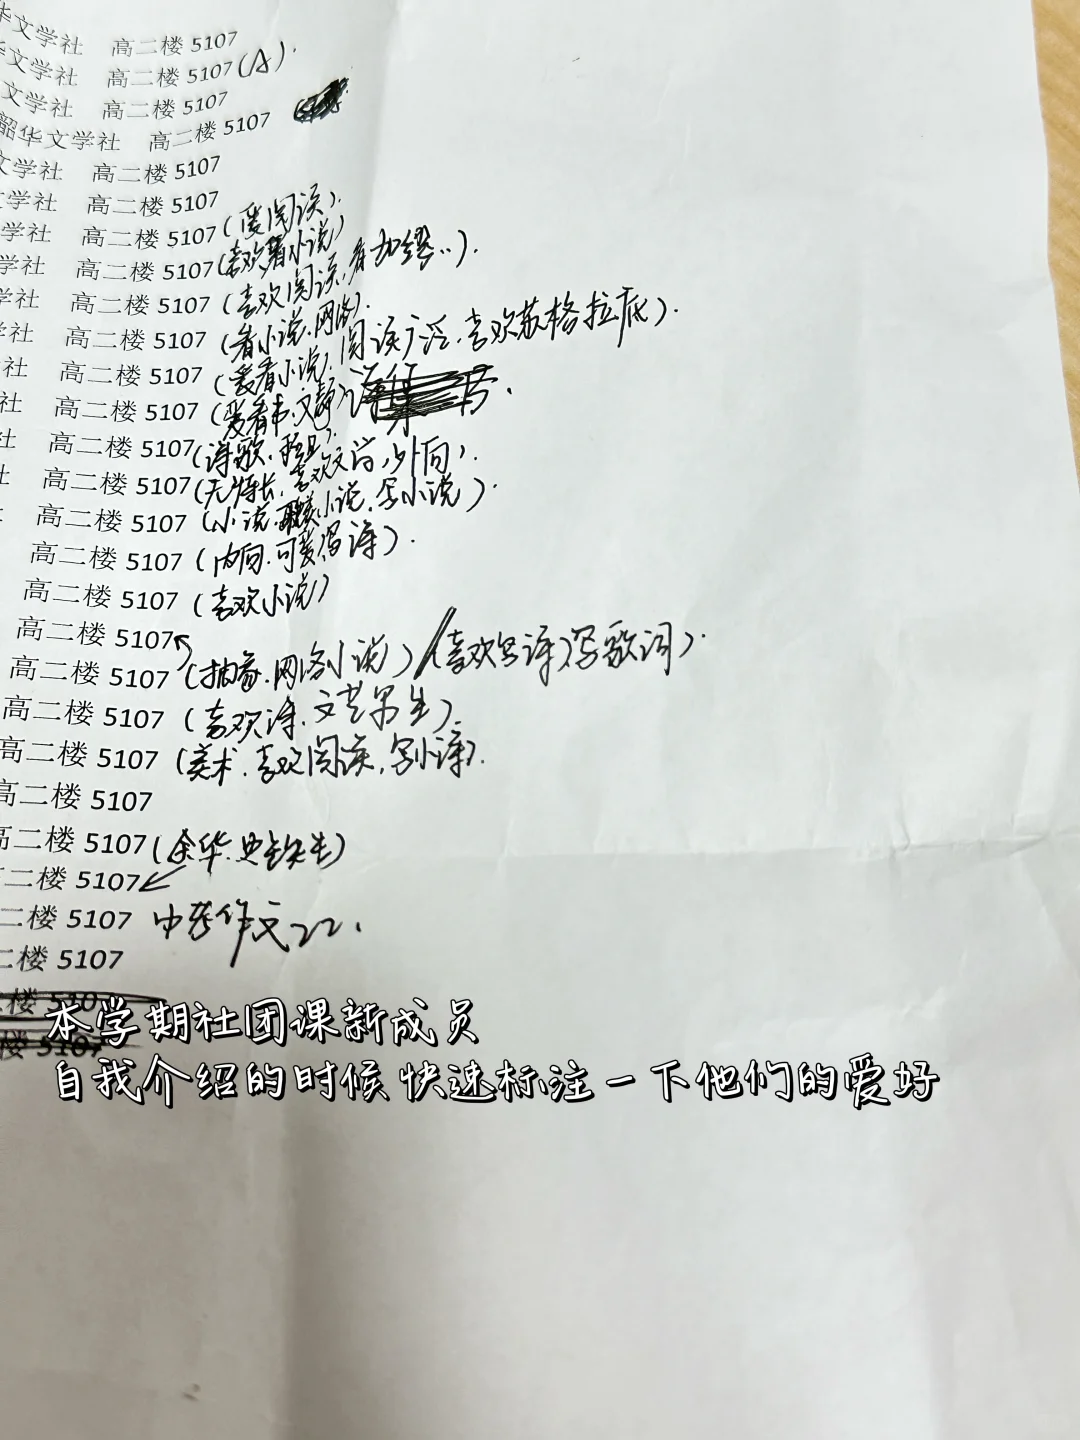 华文学社 高二楼 5107
华文学社 高二楼 5107 (A).
文学社 高二楼 5107
韶华文学社 高二楼 5107
文学社 高二楼 5107
文学社 高二楼 5107
学社 高二楼 5107 (爱阅读).
学社 高二楼 5107 (喜欢看小说)
学社 高二楼 5107 (喜欢阅读,看加缪..).
学社 高二楼 5107 (看小说.网络).
社 高二楼 5107 (爱看小说,阅读广泛.喜欢苏格拉底).
社 高二楼 5107 (爱看书.文静)
社 高二楼 5107 (诗歌.
社 高二楼 5107 (无特长,喜欢文学,外向).
高二楼 5107 (小说.小说.写小说).
高二楼 5107 (内向.可爱.诗).
高二楼 5107 (喜欢小说)
高二楼 5107
高二楼 5107 (抽象.网络小说) (喜欢写诗写歌词).
高二楼 5107 (喜欢诗.文艺男生).
高二楼 5107 (美术.喜欢阅读,写小诗).
高二楼 5107
高二楼 5107 (余华.史铁生)
二楼 5107
二楼 5107 中考作文22.
二楼 5107
楼 5107
楼 5107
本学期社团课新成员
自我介绍的时候 快速标注一下他们的爱好